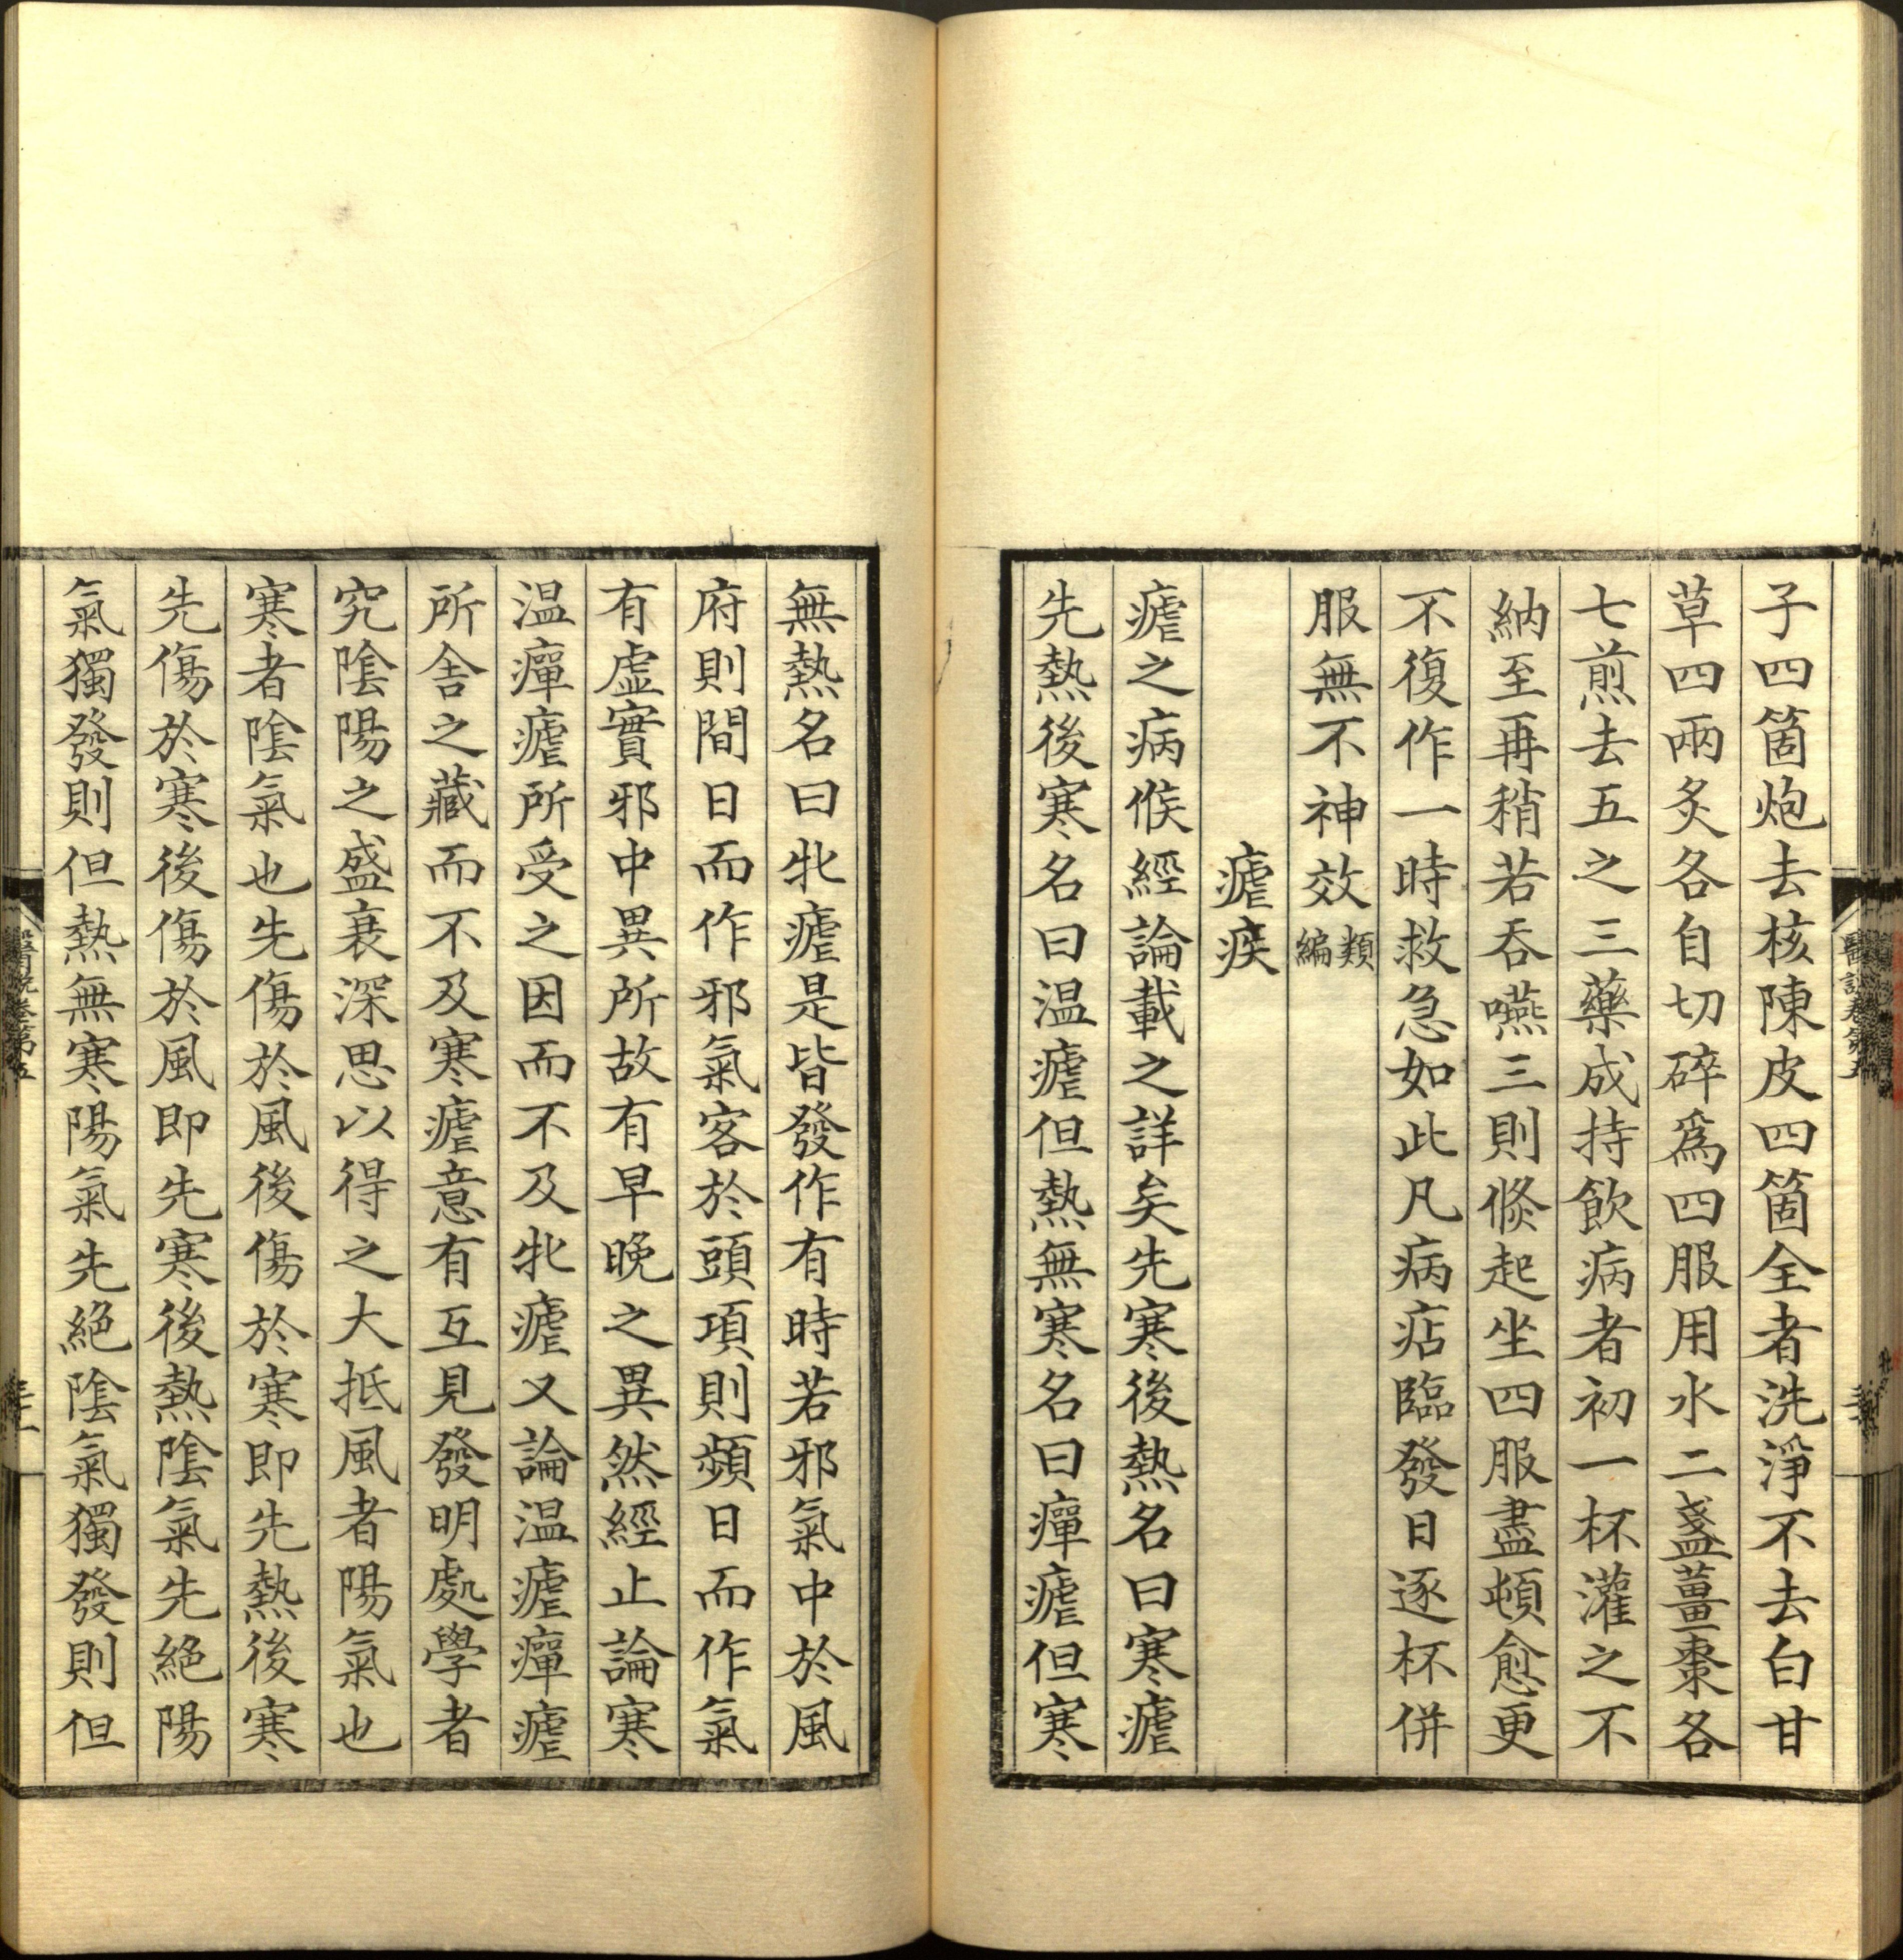 子四箇炮去核陳皮四箇全者洗淨不去白甘
草四兩炙各自切碎爲四服用水二盞薑棗各
七煎去五之三藥成持飲病者初一杯灌之不
納至再稍若吞嚥三則倐起坐四服盡頓愈更
不復作一時救急如此凡病痁臨發日逐杯併
服無不神效類編
瘧疾
瘧之病候經論載之詳矣先寒後熱名曰寒瘧
先熱後寒名曰温瘧但熱無寒名曰癉瘧但寒
無熱名曰牝瘧是皆發作有時若邪氣中於風
府則間日而作邪氣客於頭項則頻日而作氣
有虚實邪中異所故有早晚之異然經止論寒
温癉瘧所受之因而不及牝瘧又論温瘧癉瘧
所舎之藏而不及寒瘧意有互見發明處學者
究陰陽之盛衰深思以得之大抵風者陽氣也
寒者陰氣也先傷於風後傷於寒即先熱後寒
先傷於寒後傷於風即先寒後熱陰氣先絕陽
氣獨發則但熱無寒陽氣先絕陰氣獨發則但
醫說卷第五